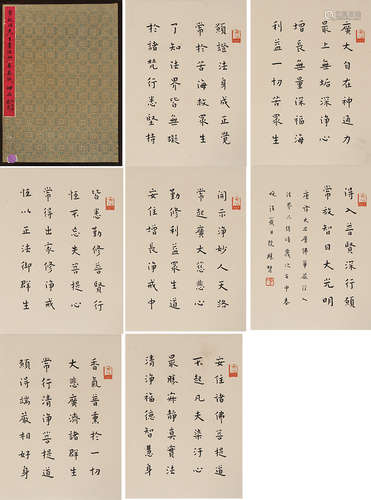 廣大自在神通力
最上無垢深淨心
增長無量深福海
利益一切苦眾生
願證法身成正覺
常於苦海救眾生
了知法界皆無礙
於諸梵行悉堅持
得入普賢深行願
常放智日大光明
開示淨妙人天路
常起廣大慈心
勤修利益眾生道
安住增長淨戒中
皆悉勤修普賢行
恆不忘失菩提心
得出家修淨戒
恆以正法御群生
安住諸佛菩提道
不起凡夫染汙心
最勝寂靜真實法
清淨福德智慧身
香氣普熏於一切
大悲廣濟諸群生
常行清淨菩提道
願得端嚴相好身